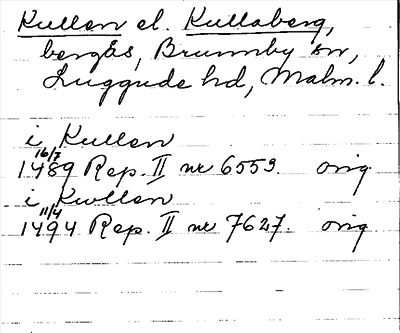 Kullen el. Kullaberg,
bergås, Brunnby sn,
Luggude hd, Malm. l.
i Kullen
16/7
1489 Rep. II nr 6553. orig.
i Kwllen
11/4
1494 Rep. II nr 7627. orig